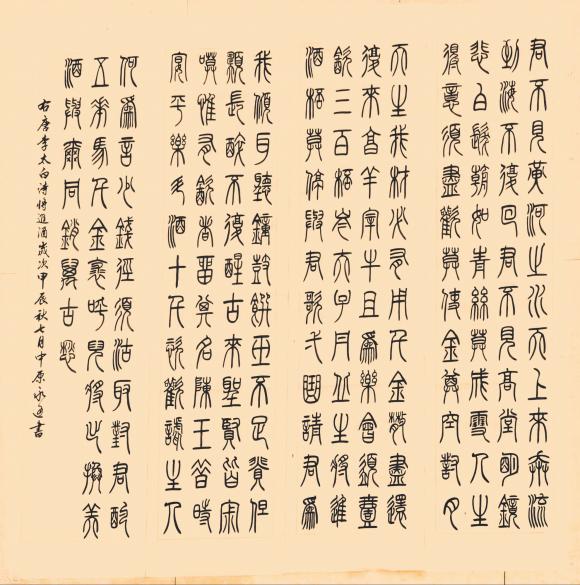 君不見黃河之水天上來奔流
到海不復回君不見高堂明鏡
悲白髮朝如青絲莫成雪人生
得意須盡歡莫使金尊空對月
天生我材必有用千金散盡還
復來亯羊宰牛且爲樂會須壹
飲三百桮岑夫子丹丘生將進
酒桮莫停與君歌弌曲請君爲
我傾耳聽鐘鼓饌玉不足貴但
願長醉不復醒古來聖賢皆宋
嗼惟有飲者留其名陳王昝時
宴平樂斗酒十千恣歡謔主人
何爲言少錢徑須沽取對君酌
五華馬千金裘呼兒將出換美
酒與爾同銷萬古愁
右唐李太白詩將進酒歲次甲辰秋七月中原永書